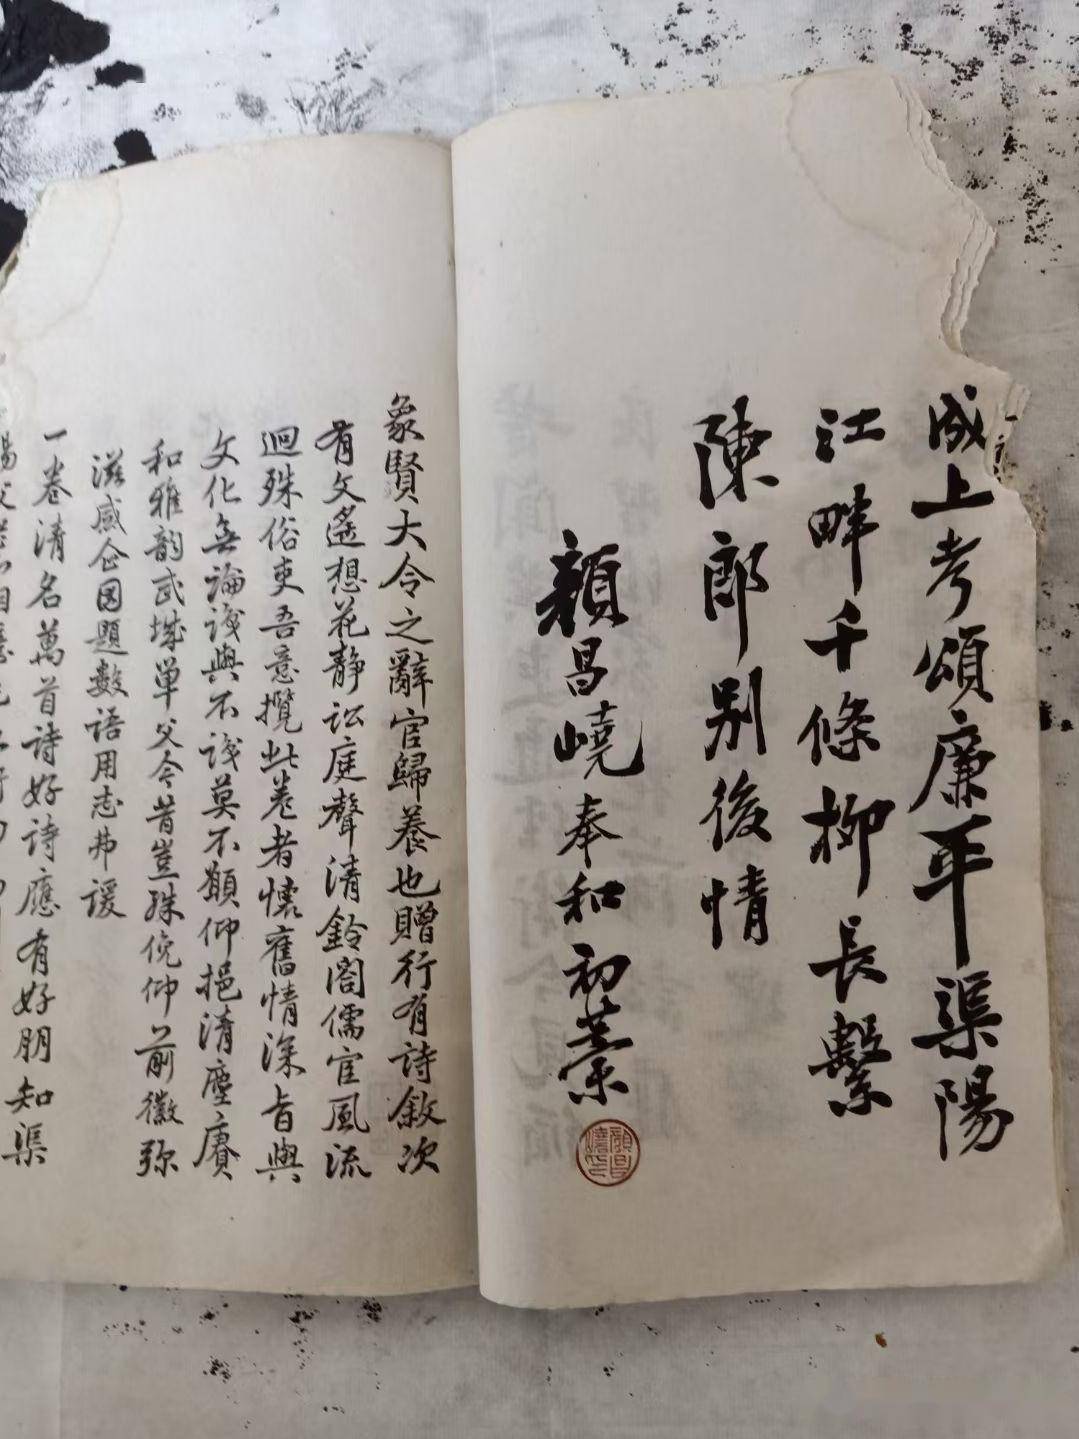 成上考頌廉平渠陽
江畔千條柳長繫
陳郎別後情
顏昌嶢奉和初藁
顏昌嶢印
象賢大令之辭官歸養也贈行有詩敘次
有文遙想花靜訟庭聲清鈴閣儒宦風流
迥殊俗吏吾意攬此卷者懷舊情深旨與
文化無論識與不識莫不顒仰挹清塵賡
和雅韵武城單父今昔豈殊俛仰前徽弥
滋感企因題數語用志弗諼
一卷清名萬首詩好詩應有好朋知渠
陽